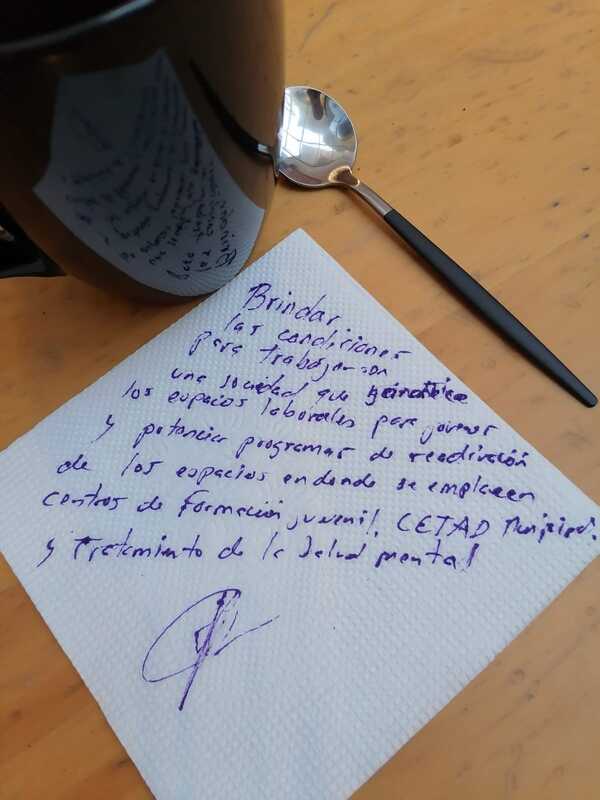 Brindar
las condiciones
para trabajar en
una sociedad que
los espacios laborales para jovenes
y potenciar programas de reactivación
de los espacios en donde se emplacen
centros de Formación juvenil, CETAD
y tratamiento de la salud mental